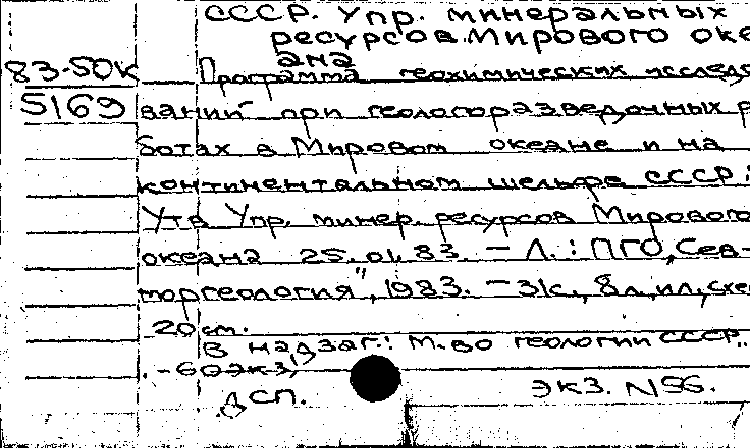 СССР. Упр. минеральных
ресурсов Мирового оке
ана
83-50К Программа геохимических исследо
5169 ваний при геологоразведочных р
ботах в Мировом океане и на
континентальном шельфе СССР:
Утв Упр. минер. ресурсов Мирового
океана 25.01.83. - Л.: ПГО, Сев-
моргеология", 1983. - 31с, 8л, ил, схе
20 см.
В надзаг: М-во геологии СССР.
. - 60экз,
ДСП.
экз. N56.